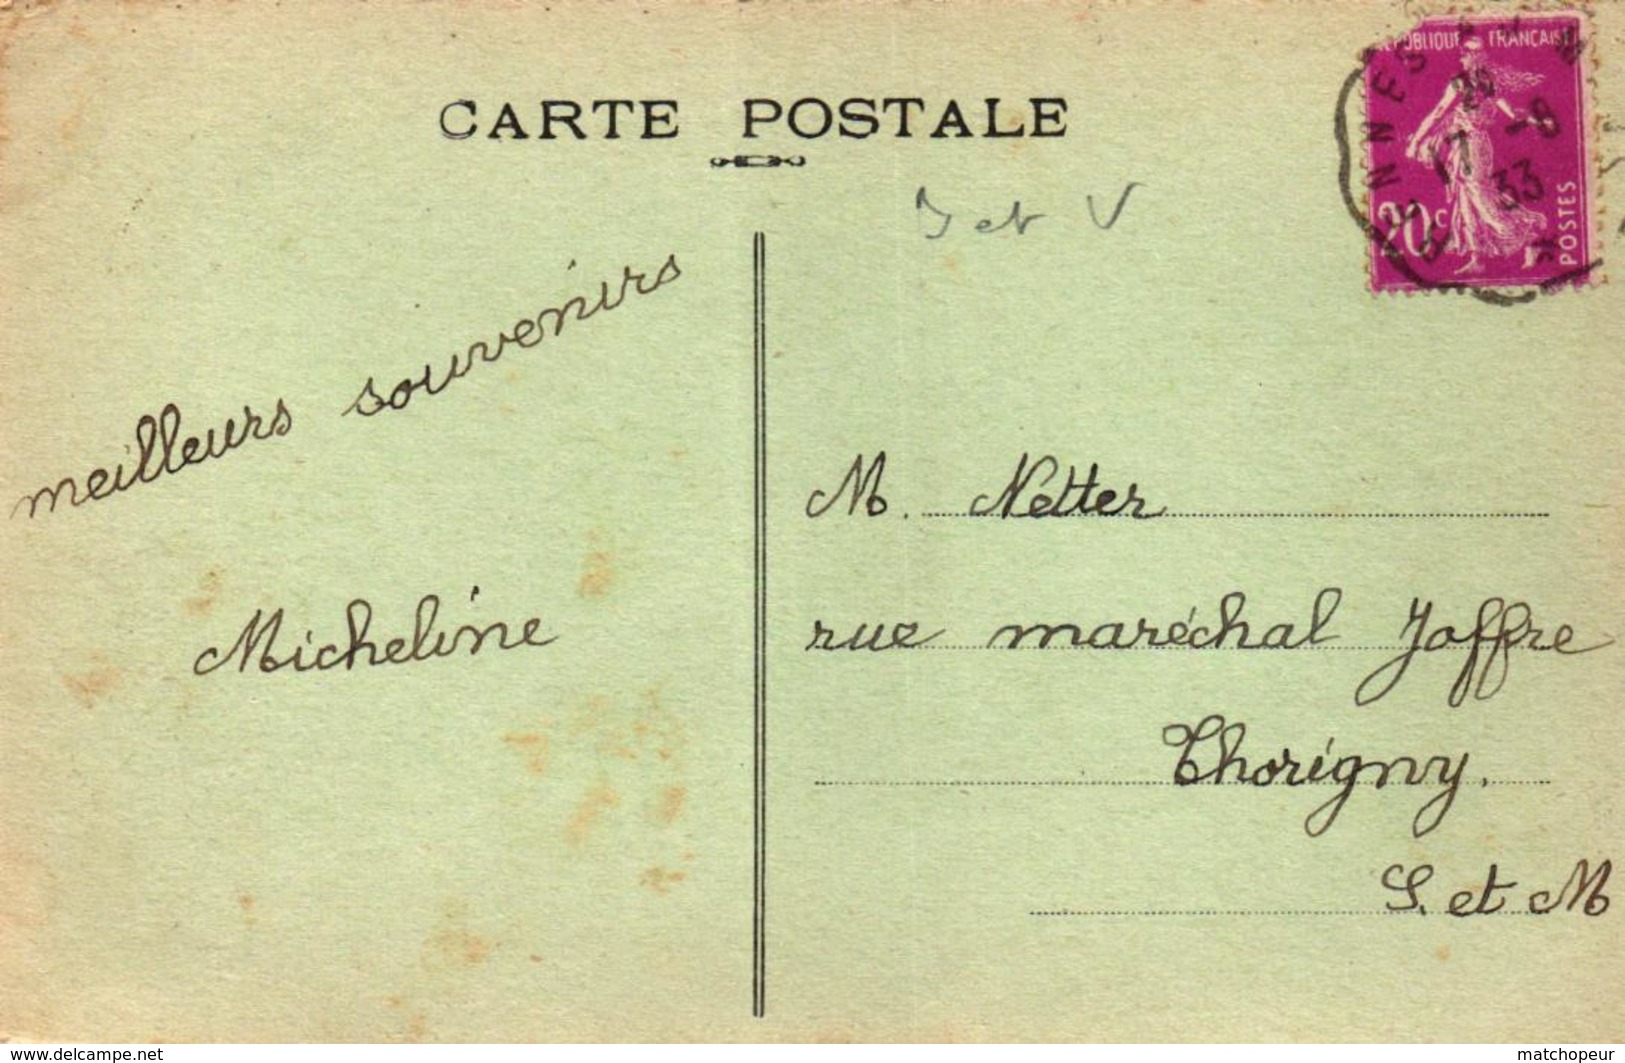 CARTE POSTALE
RÉPUBLIQUE FRANÇAISE
20c
POSTES
RENNES
17 -8
33
et V
meilleurs souvenirs
Micheline
M. Netter
rue maréchal Joffre
Thorigny.
S. et M
www.delcampe.net
matchopeur